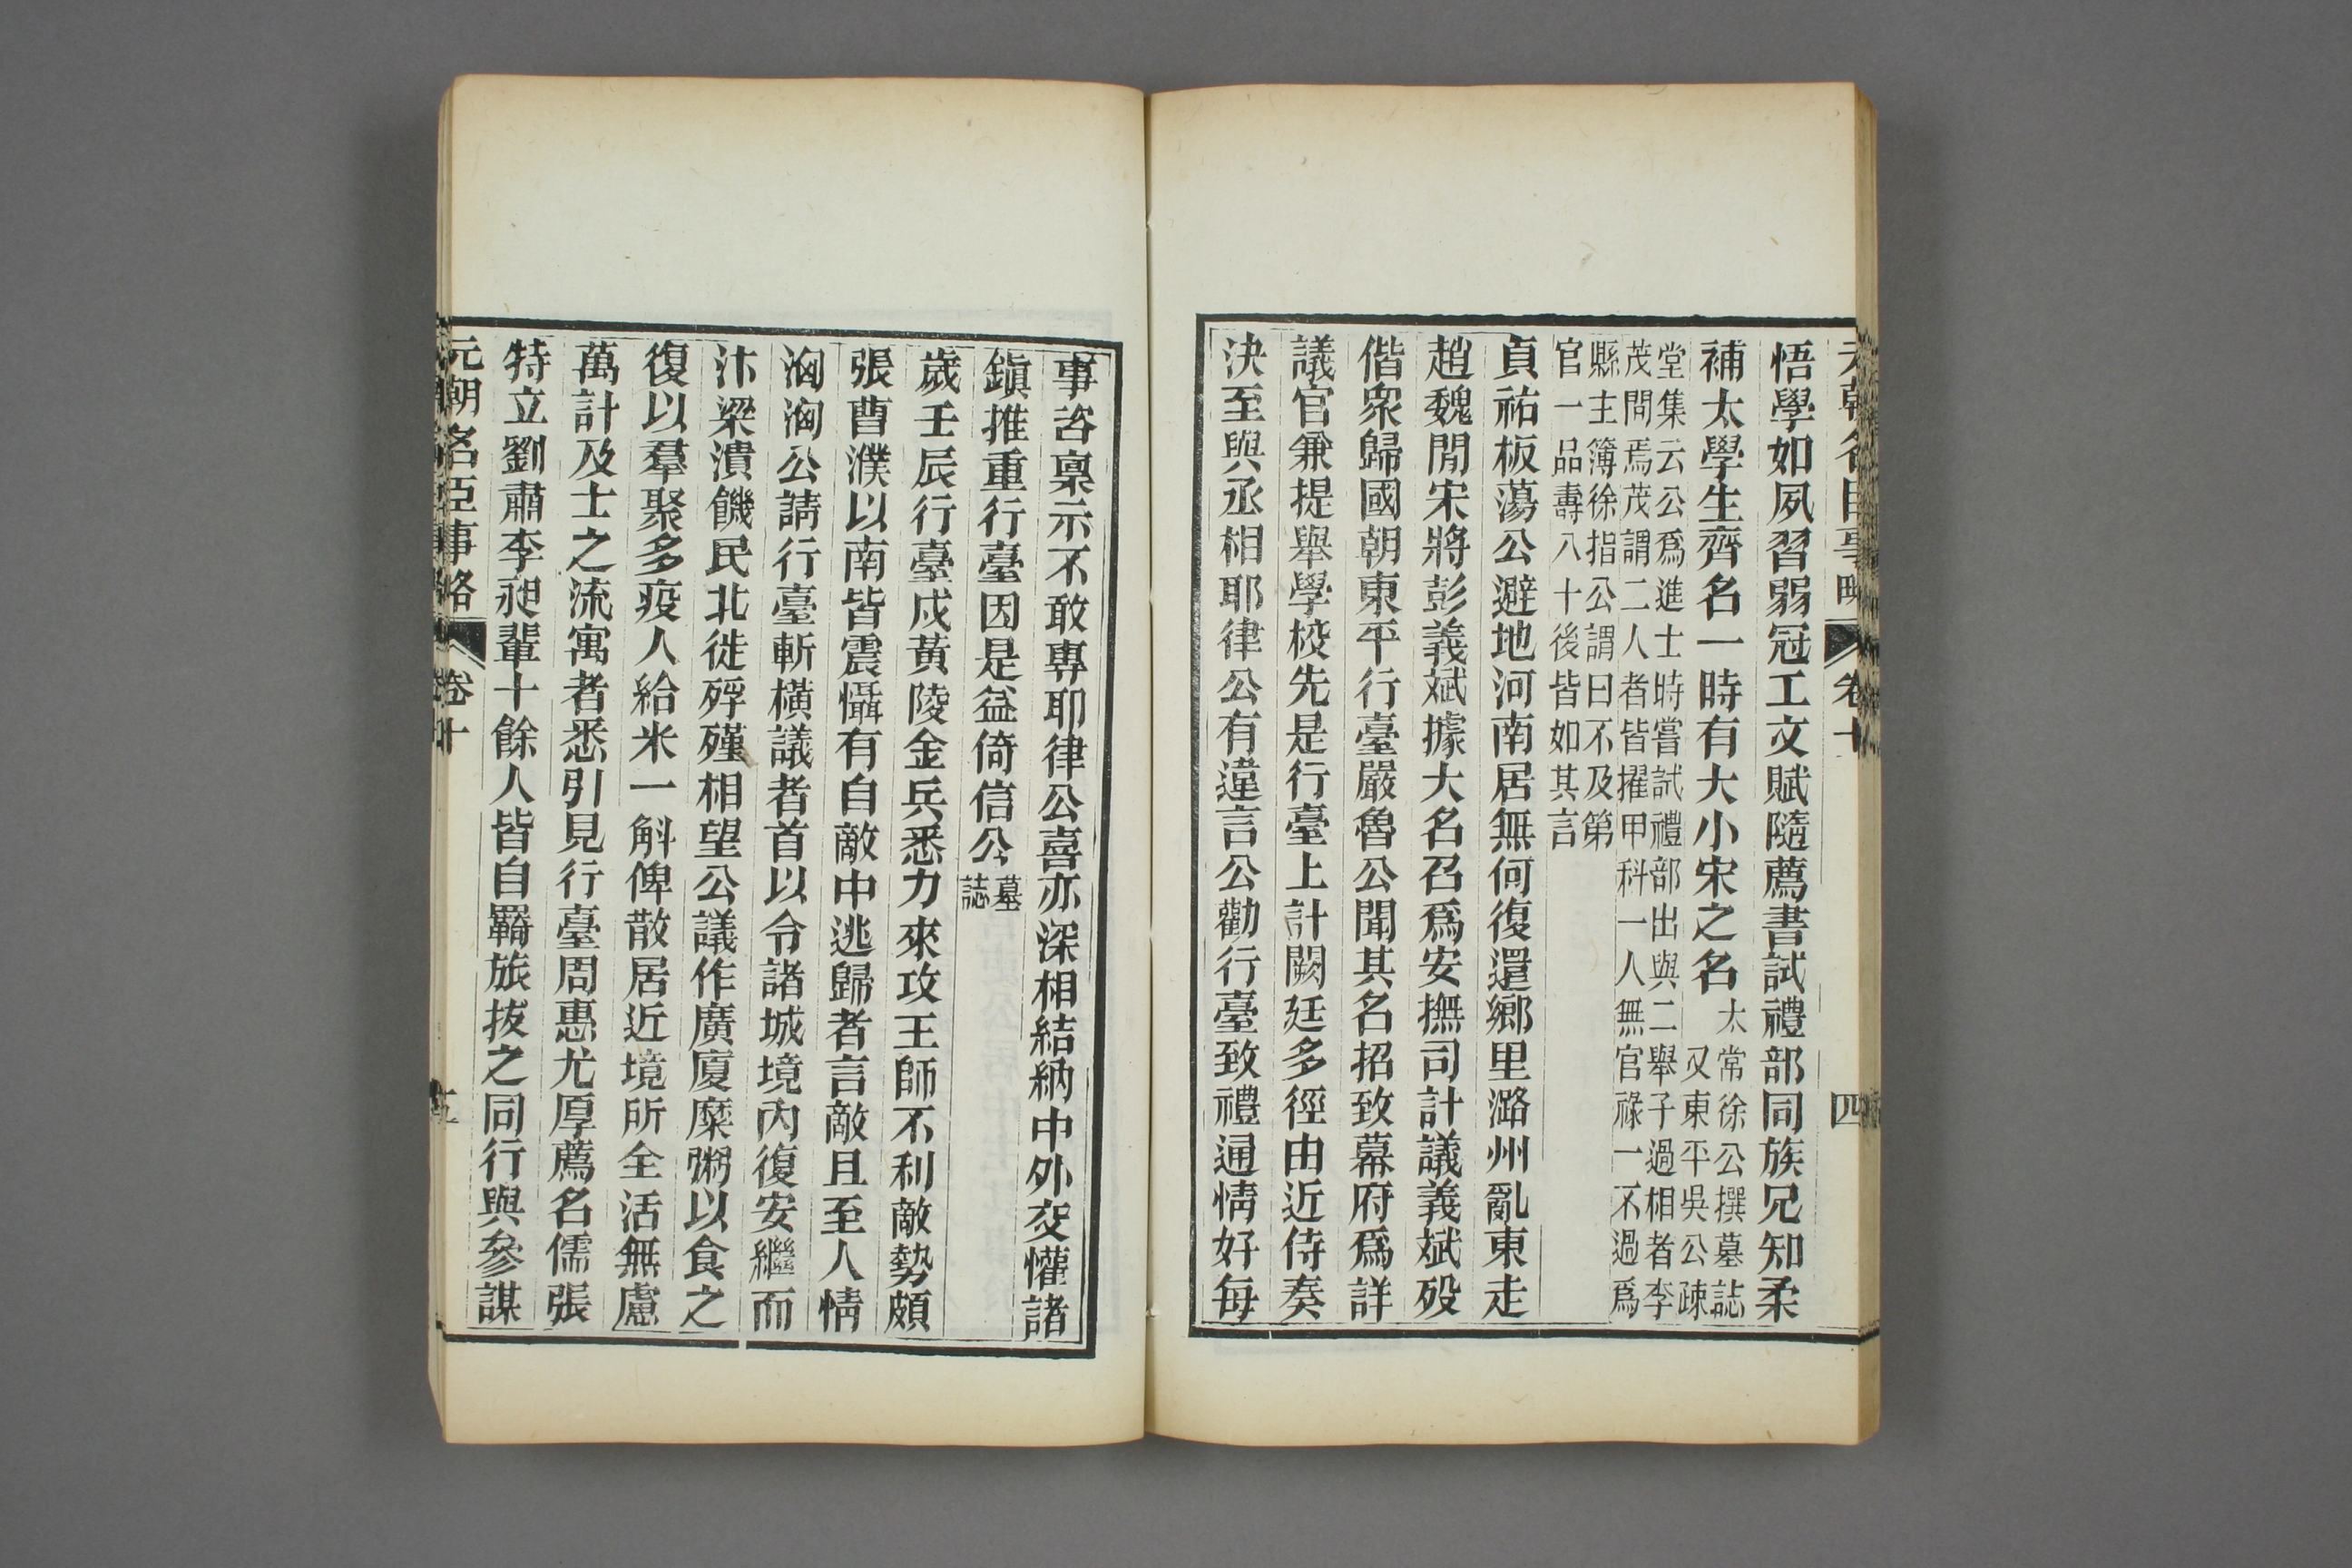 元朝名臣事略 卷十 四
悟學如夙習弱冠工文賦隨薦書試禮部同族兄知柔
補太學生齊名一時有大小宋之名太常徐公撰墓誌
又東平吳公疎
堂集云公爲進士時嘗試禮部出與二舉子過相者李
茂問焉茂謂二人者皆擢甲科一人無官祿一不過爲
縣主簿徐指公謂曰不及第
官一品壽八十後皆如其言
貞祐板蕩公避地河南居無何復還鄉里潞州亂東走
趙魏閒宋將彭義斌據大名召爲安撫司計議義斌歿
偕衆歸國朝東平行臺嚴魯公聞其名招致幕府爲詳
議官兼提舉學校先是行臺上計闕廷多徑由近侍奏
決至與丞相耶律公有違言公勸行臺致禮通情好每
事咨稟示不敢專耶律公喜亦深相結納中外交懽諸
鎭推重行臺因是益倚信公墓
誌
歲壬辰行臺戍黃陵金兵悉力來攻王師不利敵勢頗
張曹濮以南皆震懾有自敵中逃歸者言敵且至人情
洶洶公請行臺斬橫議者首以令諸城境內復安繼而
汴梁潰饑民北徙殍殣相望公議作廣廈糜粥以食之
復以羣聚多疫人給米一斛俾散居近境所全活無慮
萬計及士之流寓者悉引見行臺周惠尤厚薦名儒張
特立劉肅李昶輩十餘人皆自羈旅拔之同行與參謀
元朝名臣事略 卷十 五